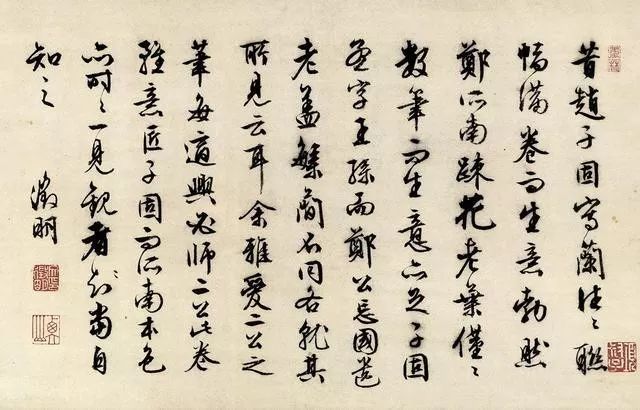 昔趙子固寫蘭往〻聯
幅滿卷而生意勃然
鄭所南疎花老葉僅〻
數筆而生意亦足子固
為宋王孫而鄭公忘國遺
老蓋繁簡不同各就其
所見云耳余雅愛二公之
筆每適興必師二公此卷
雖意匠子固而所南本色
亦時〻一見觀者則當自
知之
徵明